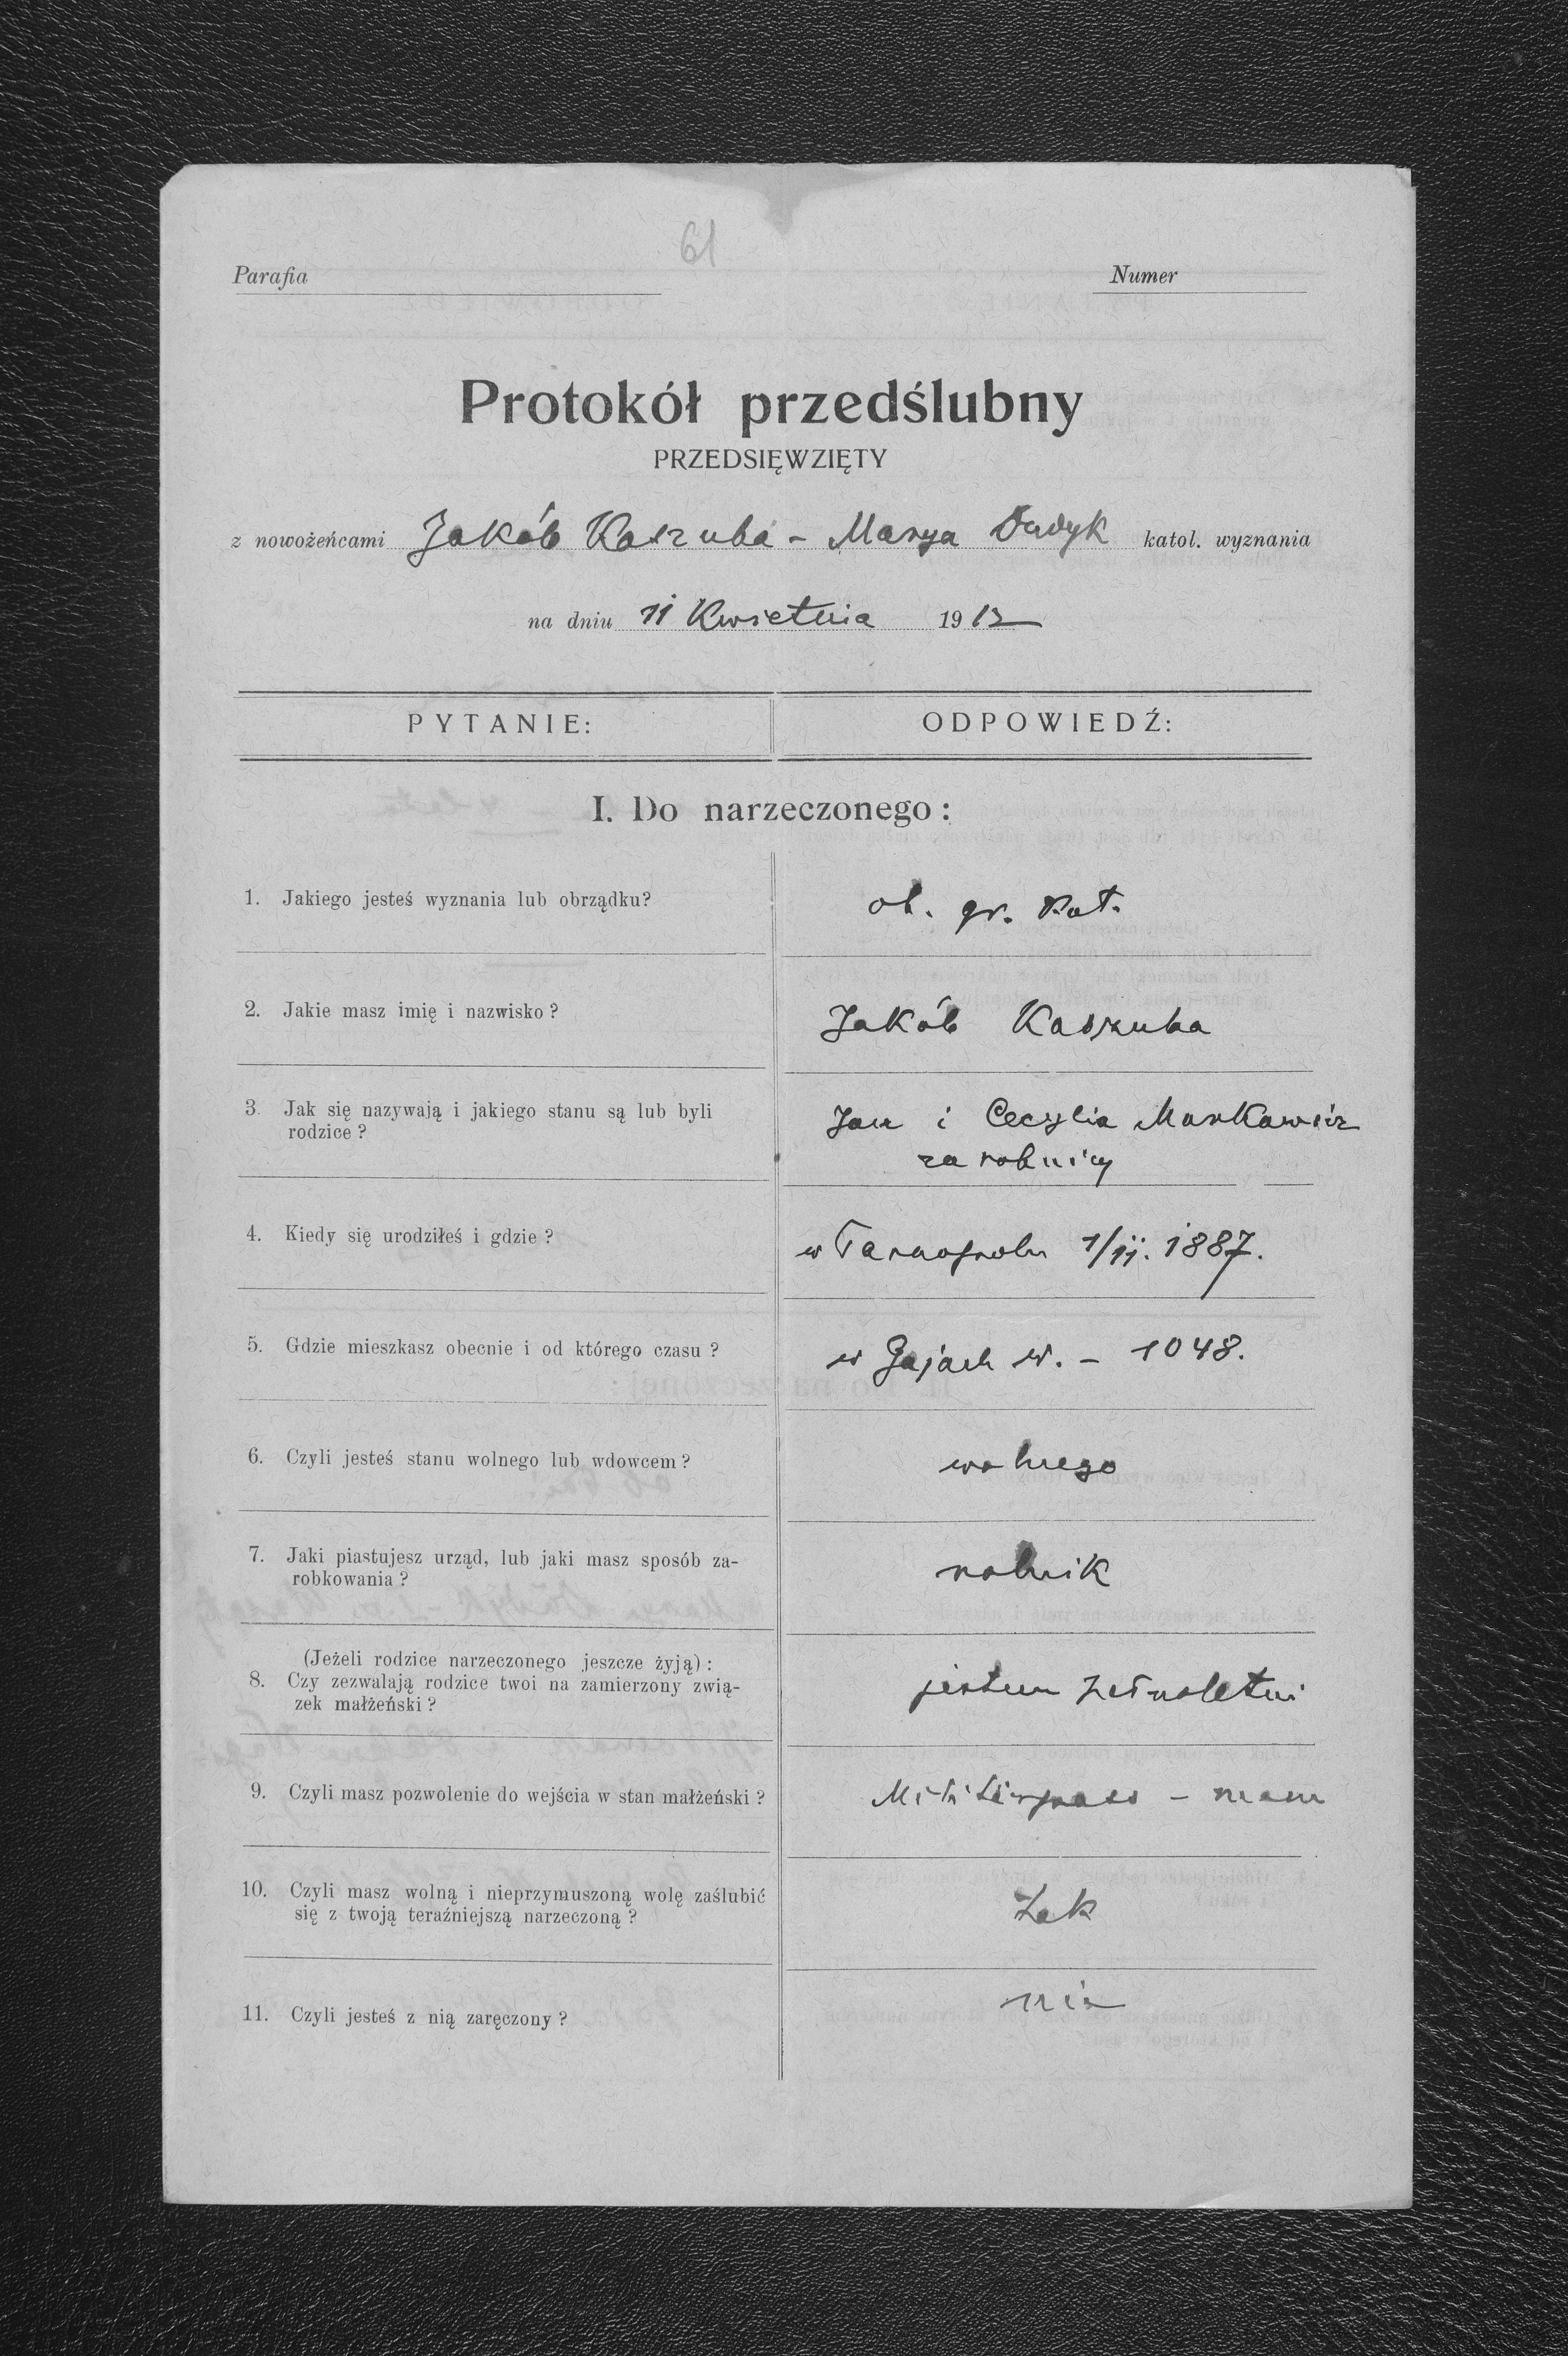 61
Parafia
Numer
Protokół przedślubny
PRZEDSIĘWZIĘTY
z nowożeńcami Jakób Kaszuba - Marya Dudyk katol. wyznania
na dniu 11 Kwietnia 1912
PYTANIE:
ODPOWIEDŹ:
I. Do narzeczonego:
1. Jakiego jesteś wyznania lub obrządku?
ob. gr. kat.
2. Jakie masz imię i nazwisko?
Jakób Kaszuba
3. Jak się nazywają i jakiego stanu są lub byli
rodzice?
Jan i Cecylia Markawicz
zarobnicy
4. Kiedy się urodziłeś i gdzie?
w Tarnopolu 1/11. 1887.
5. Gdzie mieszkasz obecnie i od którego czasu?
w Gajach w. - 1048.
6. Czyli jesteś stanu wolnego lub wdowcem?
wolnego
7. Jaki piastujesz urząd, lub jaki masz sposób za-
robkowania?
rolnik
(Jeżeli rodzice narzeczonego jeszcze żyją):
8. Czy zezwalają rodzice twoi na zamierzony zwią-
zek małżeński?
jestem pełnoletni
9. Czyli masz pozwolenie do wejścia w stan małżeński?
Militärpass - mam
10. Czyli masz wolną i nieprzymuszoną wolę zaślubić
się z twoją teraźniejszą narzeczoną?
Tak
11. Czyli jesteś z nią zaręczony?
nie